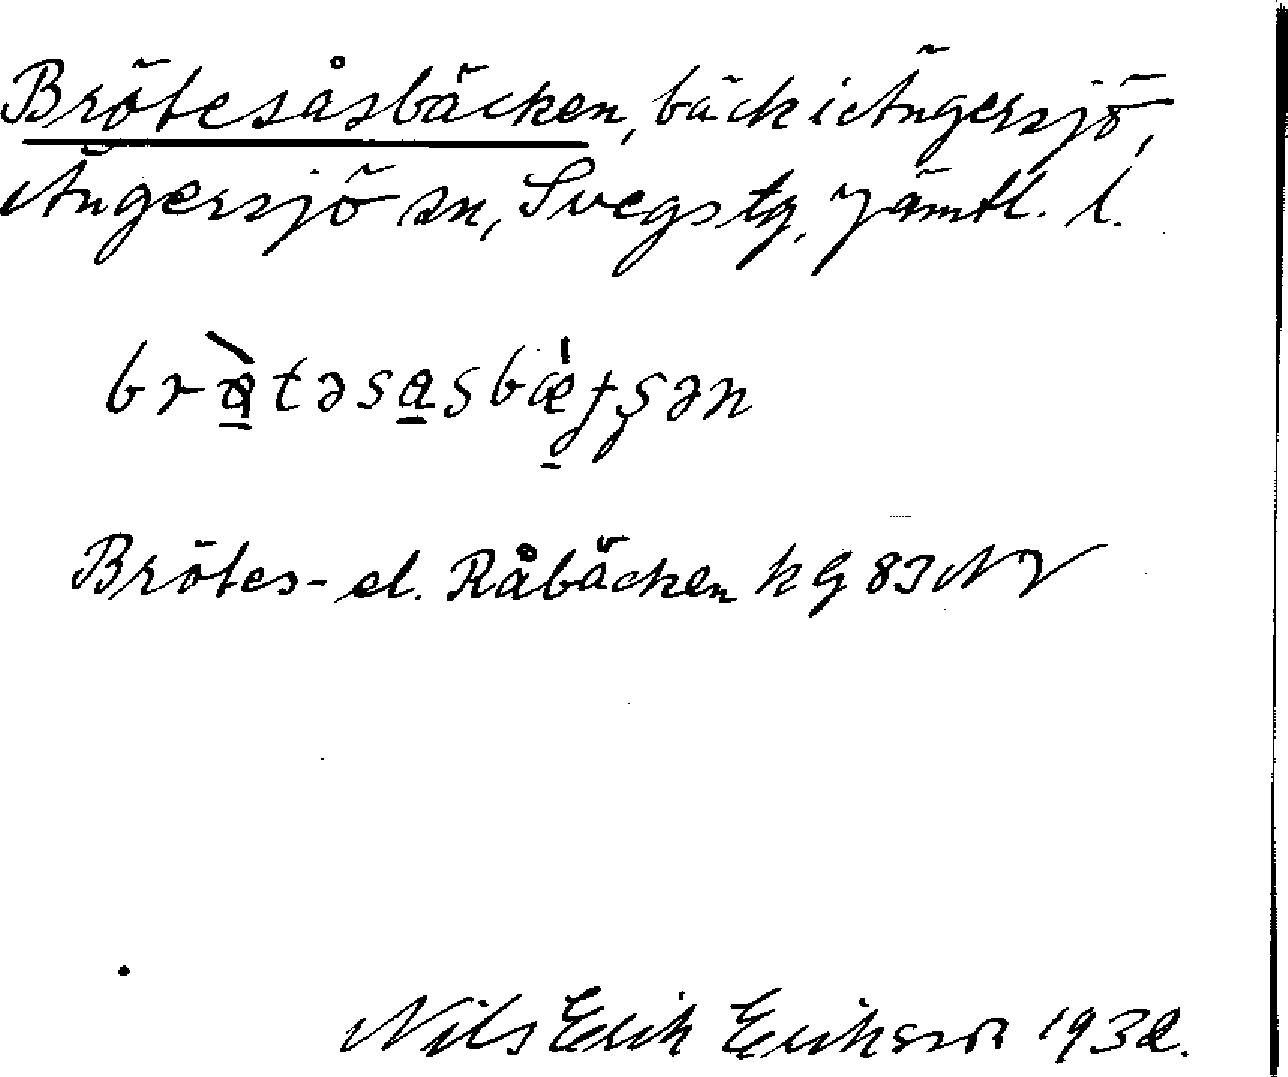 Brötesåsbäcken, bäck i Ängersjö,
Ängersjö sn, Svegs tg, Jämtl. l.
Brötes- el. Råbäcken kG 83 NV
Nils Erik Eriksson 1932.